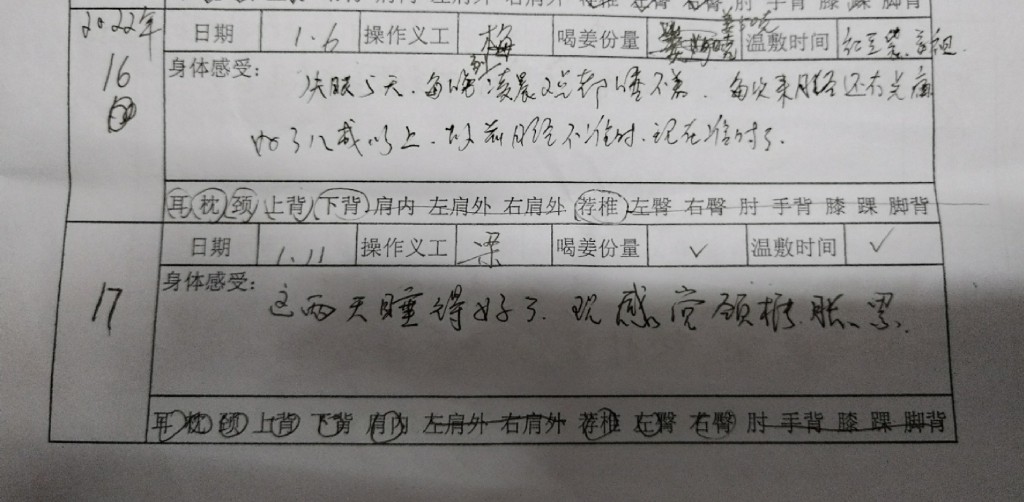 上背 下背 肩内 左肩外 右肩外 荐椎 左臀 右臀 肘 手背 膝 踝 脚背
2022年
日期 1.6 操作义工 梅 喝姜份量 温敷时间
16
身体感受:
失眠5天、每晚到凌晨2点都睡不着、每次来月经还有点痛
好了八成以上、以前月经不准时、现在准时了、
耳 枕 颈 上背 下背 肩内 左肩外 右肩外 荐椎 左臀 右臀 肘 手背 膝 踝 脚背
日期 1.11 操作义工 梁 喝姜份量 ✓ 温敷时间 ✓
17
身体感受:
这两天睡得好了、现感觉颈椎胀、累、
耳 枕 颈 上背 下背 肩内 左肩外 右肩外 荐椎 左臀 右臀 肘 手背 膝 踝 脚背